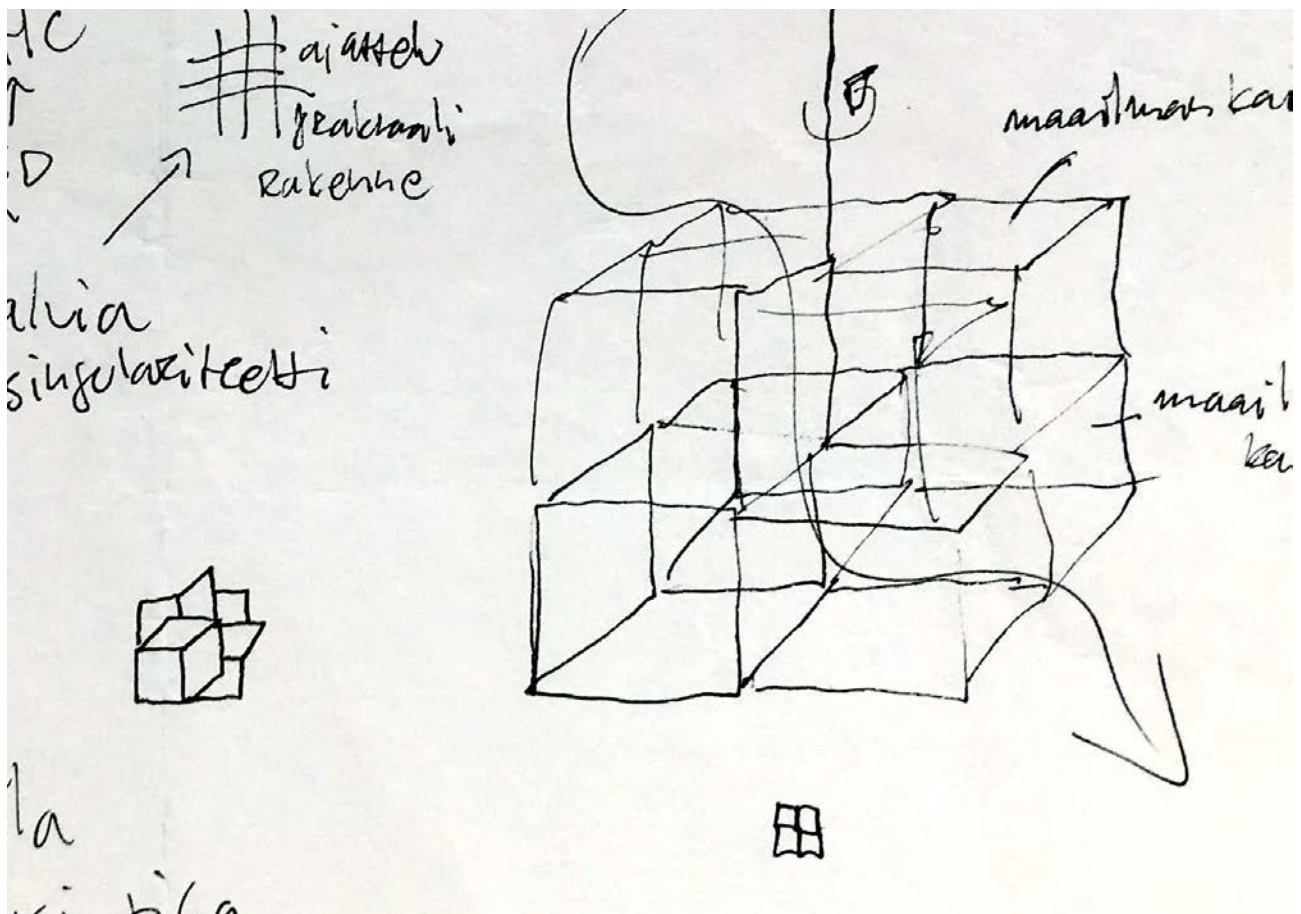 HC
ajattelu
fraktaali
Rakenne
D
maailman kai
alvia
singulariteetti
maail
kai
la